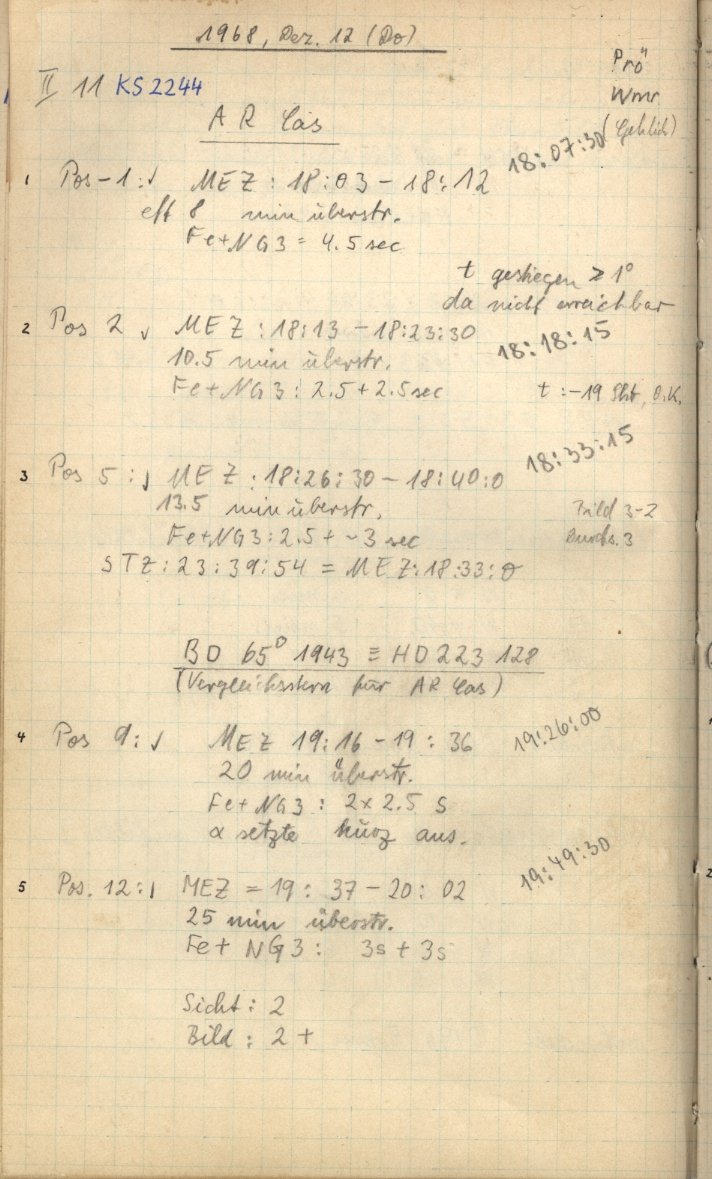 1968, Dez. 12 (Do)
Prö
II 11 KS2244
Wmr
AR Cas
(Gehlich)
18:07:30
1 Pos-1:√ MEZ: 18:03 - 18:12
eff 8 min überstr.
Fe+NG3 = 4.5 sec
t gestiegen > 1°
da nicht erreichbar
2 Pos 2 √ MEZ: 18:13 - 18:23:30
18:18:15
10.5 min überstr.
Fe+NG3: 2.5 + 2.5 sec
t: -19 Skt, O.K.
18:33:15
3 Pos 5:√ MEZ: 18:26:30 - 18:40:0
13.5 min überstr.
Bild 3-2
Fe+NG3: 2.5 + ~3 sec
Durchs. 3
STZ: 23:39:54 = MEZ: 18:33:0
BD 65° 1943 ≡ HD 223 128
(Vergleichsstern für AR Cas)
4 Pos 9:√ MEZ 19:16 - 19:36
19:26:00
20 min überstr.
Fe+NG3: 2x2.5 s
α setzte kurz aus.
19:49:30
5 Pos. 12:√ MEZ = 19:37 - 20:02
25 min überstr.
Fe+ NG3: 3s + 3s
Sicht: 2
Bild: 2+